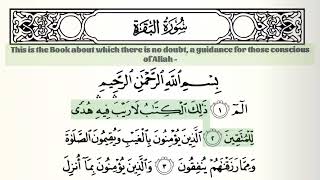 سُورَةُ البَقَرَةِ
This is the Book about which there is no doubt, a guidance for those conscious
of Allah -
بِسْمِ اللَّهِ الرَّحْمَٰنِ الرَّحِيمِ
الٓمٓ ١ ذَٰلِكَ الْكِتَٰبُ لَا رَيْبَ فِيهِ هُدًى
لِّلْمُتَّقِينَ ٢ الَّذِينَ يُؤْمِنُونَ بِالْغَيْبِ وَيُقِيمُونَ الصَّلَوٰةَ
وَمِمَّا رَزَقْنَٰهُمْ يُنفِقُونَ ٣ وَالَّذِينَ يُؤْمِنُونَ بِمَآ أُنزِلَ